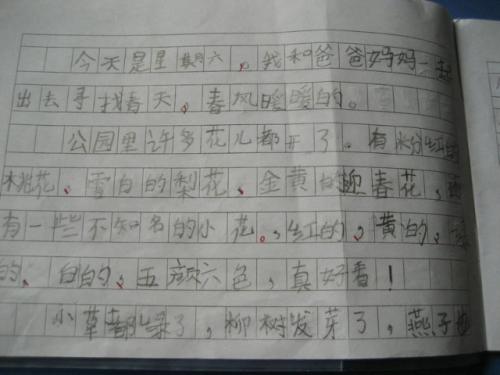 今天是星期六。我和爸爸妈妈一起
出去寻找春天。春风暖暖的。
公园里许多花儿都开了。有粉红的
桃花、雪白的梨花、金黄的迎春花，还
有一些不知名的小花。红的、黄的、绿
的、白的、五颜六色，真好看！
小草都绿了，柳树发芽了，燕子也